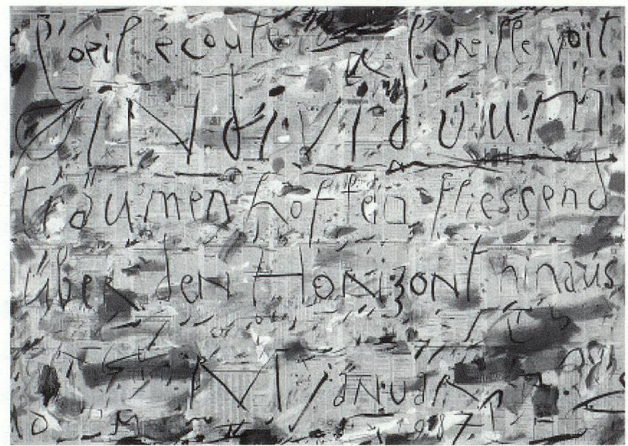 l'oeil écoute l'oreille voit
INdividuum
träumenhoften fliessend
über den Horizont hinaus
januar
1987